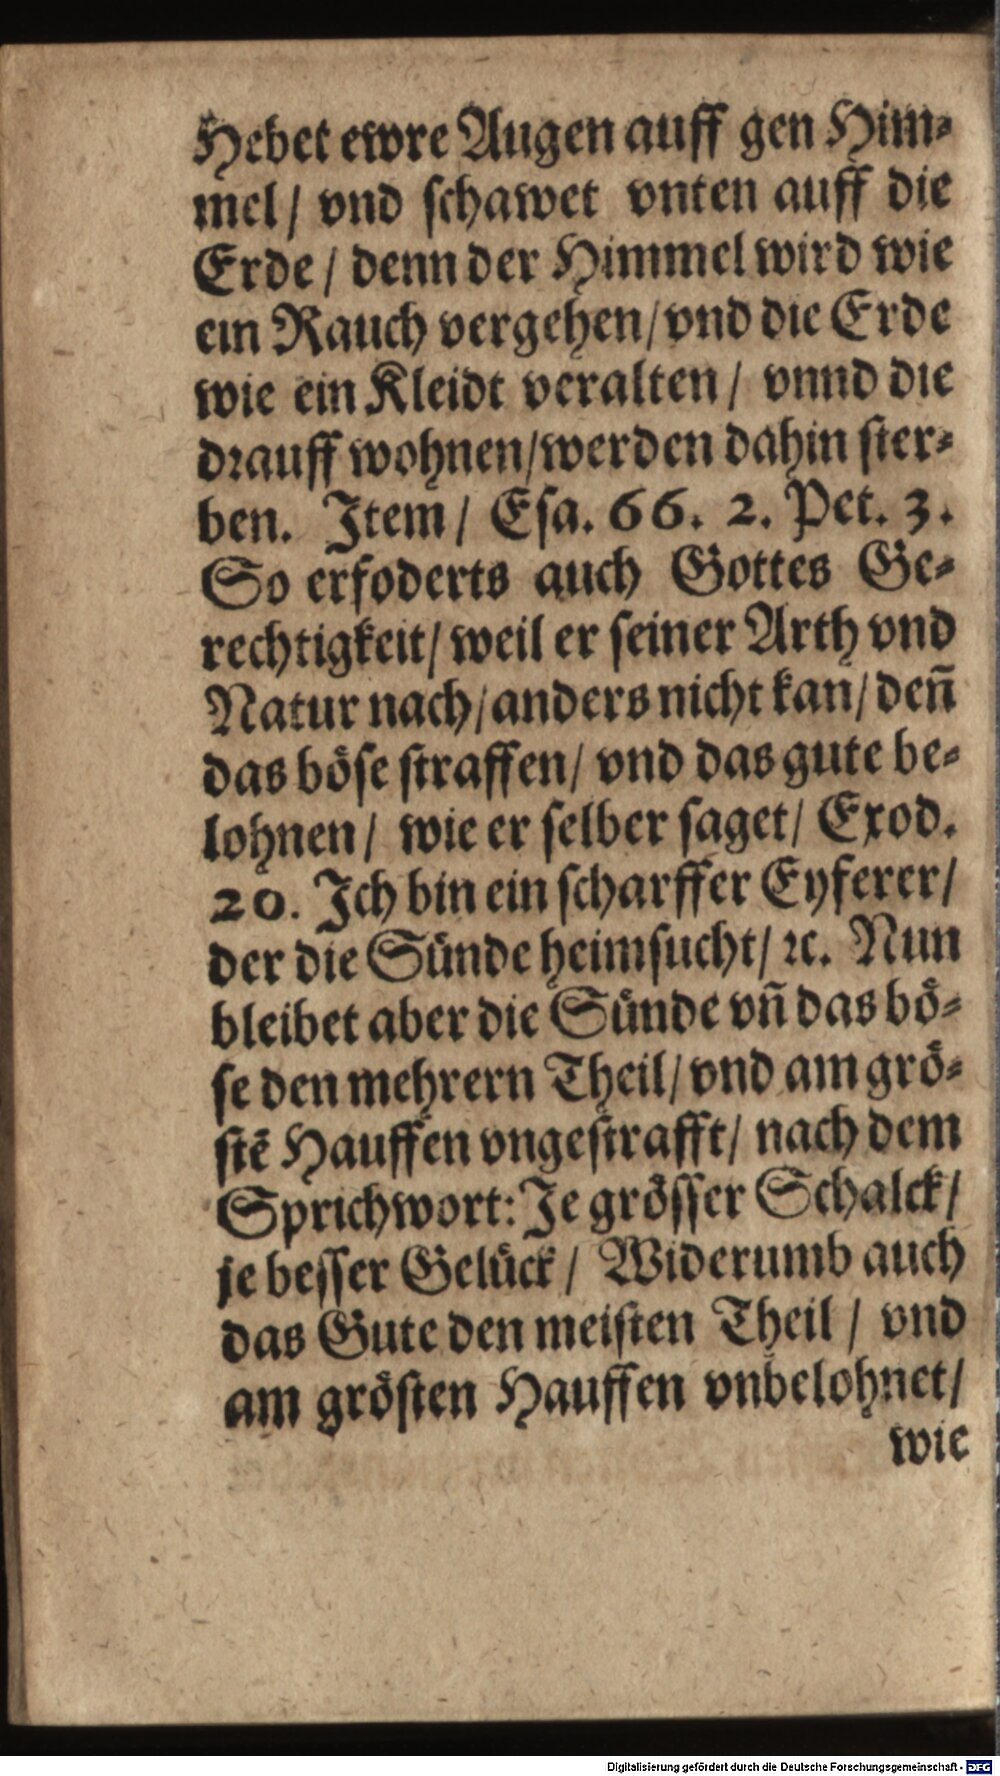 Hebet ewre Augen auff gen Him⸗
mel / vnd schawet vnten auff die
Erde / denn der Himmel wird wie
ein Rauch vergehen / vnd die Erde
wie ein Kleidt veralten / vnnd die
drauff wohnen / werden dahin ster⸗
ben. Item / Esa. 66. 2. Pet. 3.
So erfoderts auch Gottes Ge⸗
rechtigkeit / weil er seiner Arth vnd
Natur nach / anders nicht kan / deñ
das böse straffen / vnd das gute be⸗
lohnen / wie er selber saget / Exod.
20. Ich bin ein scharffer Eyferer /
der die Sünde heimsucht / ꝛc. Nun
bleibet aber die Sünde vñ das bö⸗
se den mehrern Theil / vnd am grö⸗
stẽ Hauffen vngestrafft / nach dem
Sprichwort: Je grösser Schalck /
je besser Gelück / Widerumb auch
das Gute den meisten Theil / vnd
am grösten Hauffen vnbelohnet /
wie
Digitalisierung gefördert durch die Deutsche Forschungsgemeinschaft - DFG